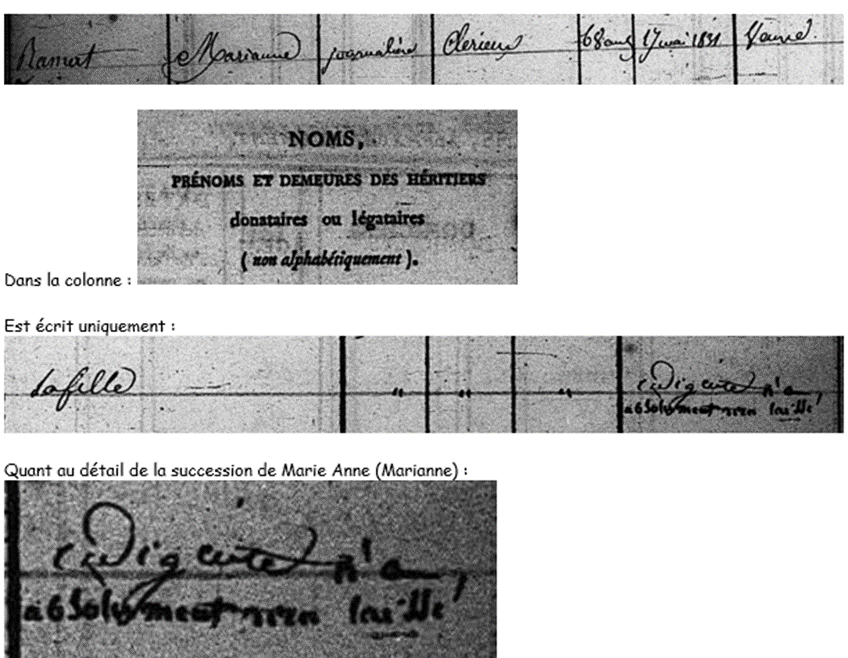 Ramat Marianne journalière Clérieux 68 ans 17 mai 1831 Veuve.
NOMS,
PRÉNOMS ET DEMEURES DES HÉRITIERS
donataires ou légataires
( non alphabétiquement ).
Dans la colonne :
Est écrit uniquement :
Sa fille " " " indigente n'a
absolument rien laissé
Quant au détail de la succession de Marie Anne (Marianne) :
indigente n'a
absolument rien laissé